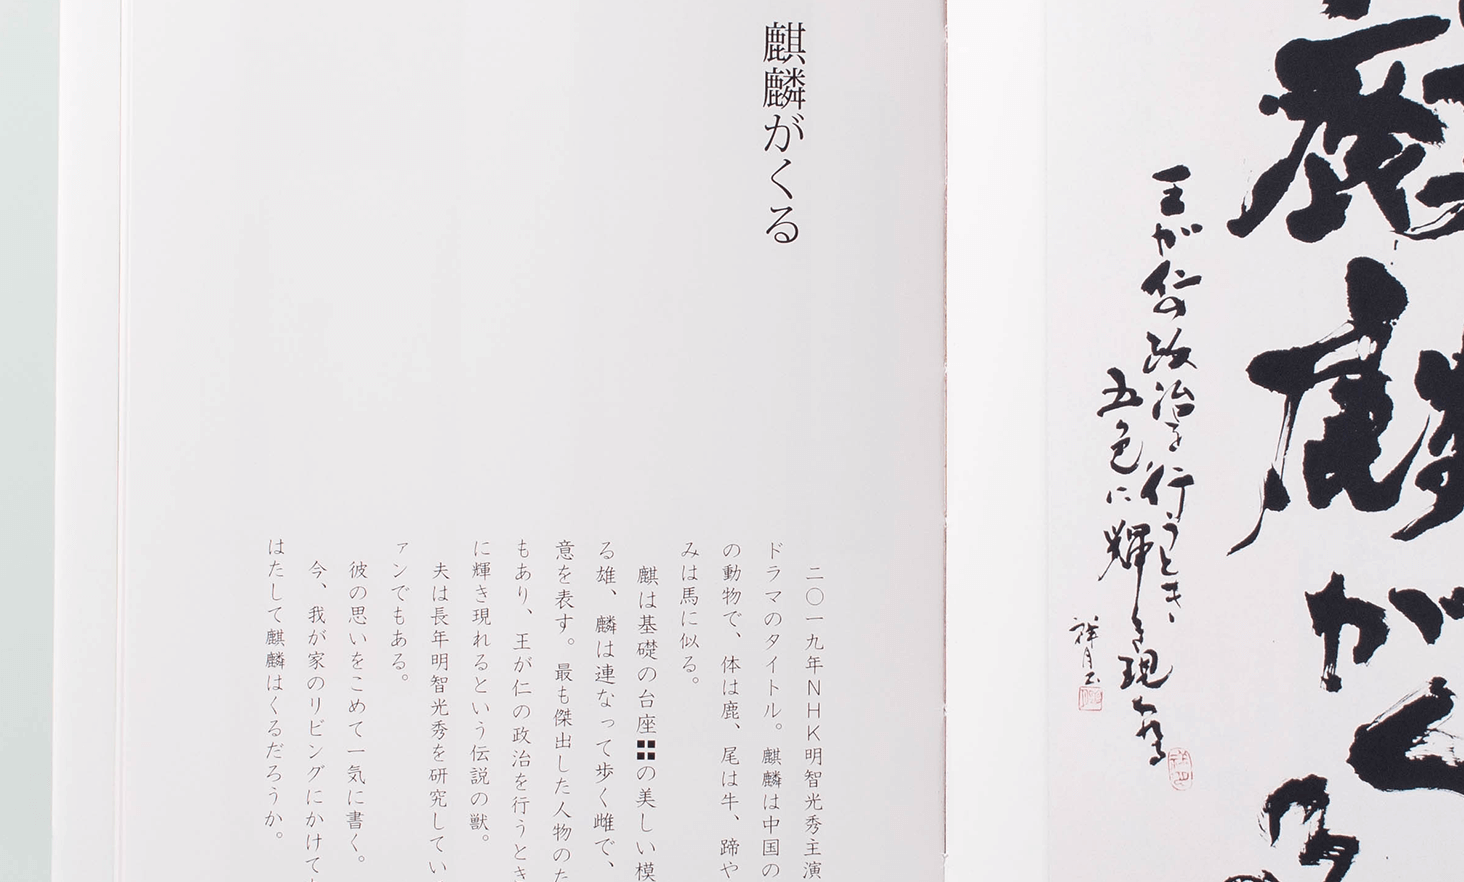 麒麟がくる
王が仁の政治を行うとき、
五色に輝き現わる
祥月書
麒麟がくる
二〇一九年NHK明智光秀主演
ドラマのタイトル。麒麟は中国の
の動物で、体は鹿、尾は牛、蹄や
みは馬に似る。
麒は基礎の台座の美しい模
る雄、麟は連なって歩く雌で、
意を表す。最も傑出した人物のた
もあり、王が仁の政治を行うとき
に輝き現れるという伝説の獣。
夫は長年明智光秀を研究してい
ァンでもある。
彼の思いをこめて一気に書く。
今、我が家のリビングにかけて
はたして麒麟はくるだろうか。